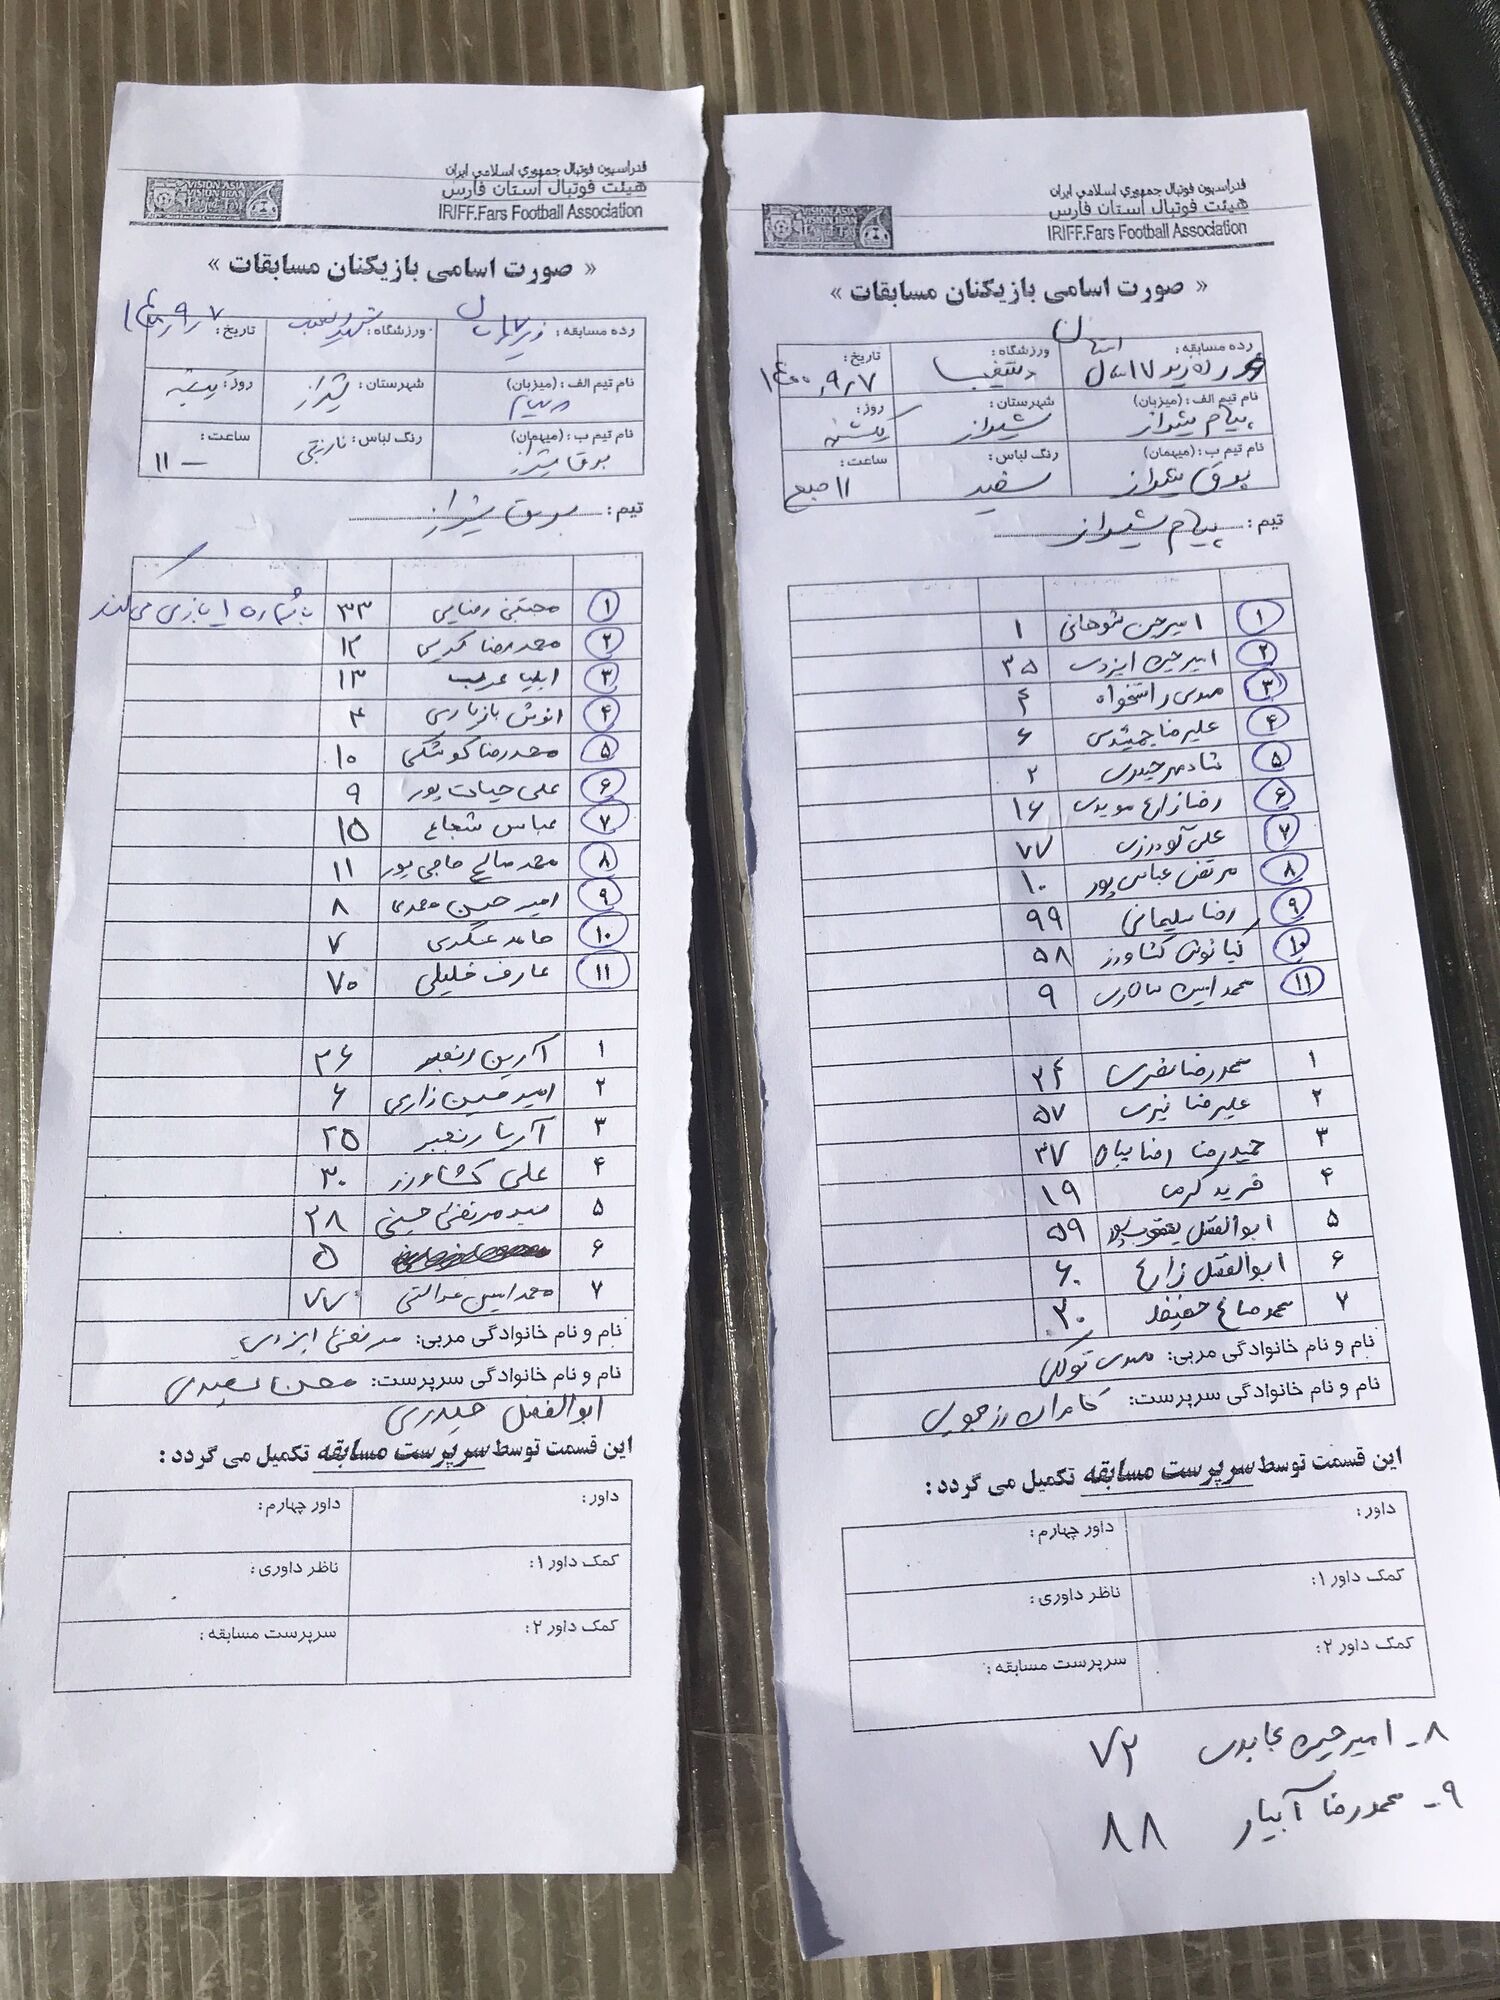 فدراسیون فوتبال جمهوری اسلامی ایران
هیئت فوتبال استان فارس
IRIFF.Fars Football Association
VISION ASIA
VISION IRAN
« صورت اسامی بازیکنان مسابقات »
رده مسابقه: زیر ۱۷ سال ورزشگاه: تاریخ: ۱۴۰۰٫۹٫۷
نام تیم الف: (میزبان) پیام شهرستان: شیراز روز: یکشنبه
نام تیم ب: (میهمان) برق شیراز رنگ لباس: نارنجی ساعت: ۱۱
تیم: برق شیراز
۱ مجتبی رضایی ۳۳ با شماره ۱ بازی می‌کند
۲ محمدرضا کریمی ۱۲
۳ ایلیا عرب ۱۳
۴ انوش بازیاری ۴
۵ محمدرضا کوشکی ۱۰
۶ علی حیات پور ۹
۷ عباس شجاع ۱۵
۸ محمد صالح حاجی پور ۱۱
۹ امیر حسین محمدی ۸
۱۰ حامد عسگری ۷
۱۱ عارف خلیلی ۷۰
۱ آرین رنجبر ۲۶
۲ امیر حسین زارعی ۶
۳ آریا رنجبر ۲۵
۴ علی کشاورز ۳۰
۵ سید مرتضی حسینی ۲۸
۶ ۵
۷ محمد امین عدالتی ۷۷
نام و نام خانوادگی مربی: مرتضی ایزدی
نام و نام خانوادگی سرپرست: محسن سعیدی
ابوالفضل حیدری
این قسمت توسط سرپرست مسابقه تکمیل می گردد :
داور: داور چهارم:
کمک داور ۱: ناظر داوری:
کمک داور ۲: سرپرست مسابقه:
فدراسیون فوتبال جمهوری اسلامی ایران
هیئت فوتبال استان فارس
IRIFF.Fars Football Association
VISION ASIA
VISION IRAN
« صورت اسامی بازیکنان مسابقات »
رده مسابقه: زیر ۱۷ سال استان ورزشگاه: دستغیب تاریخ: ۱۴۰۰٫۹٫۷
نام تیم الف: (میزبان) پیام شیراز شهرستان: شیراز روز: یکشنبه
نام تیم ب: (میهمان) برق شیراز رنگ لباس: سفید ساعت: ۱۱ صبح
تیم: پیام شیراز
۱ امیرحسن شوهانی ۱
۲ امیرحسین ایزدی ۳۵
۳ مهدی راستخواه ۴
۴ علیرضا جمشیدی ۶
۵ شادمهر حیدری ۲
۶ رضا زارع مویدی ۱۶
۷ علی گودرزی ۷۷
۸ مرتضی عباس پور ۱۰
۹ رضا سلیمانی ۹۹
۱۰ کیانوش کشاورز ۵۸
۱۱ محمد امین سالاری ۹
۱ محمدرضا ۳۴
۲ علیرضا نیری ۵۷
۳ حمیدرضا رضا پناه ۳۷
۴ فرید کرمی ۱۹
۵ ابوالفضل یعقوب پور ۵۹
۶ ابوالفضل زارع ۶۰
۷ محمد صالح حفیظ ۳۰
نام و نام خانوادگی مربی: مهدی توکلی
نام و نام خانوادگی سرپرست: کامران رزمجویی
این قسمت توسط سرپرست مسابقه تکمیل می گردد :
داور: داور چهارم:
کمک داور ۱: ناظر داوری:
کمک داور ۲: سرپرست مسابقه:
۸- امیرحسین عابدی ۷۲
۹- محمدرضا آبیار ۸۸